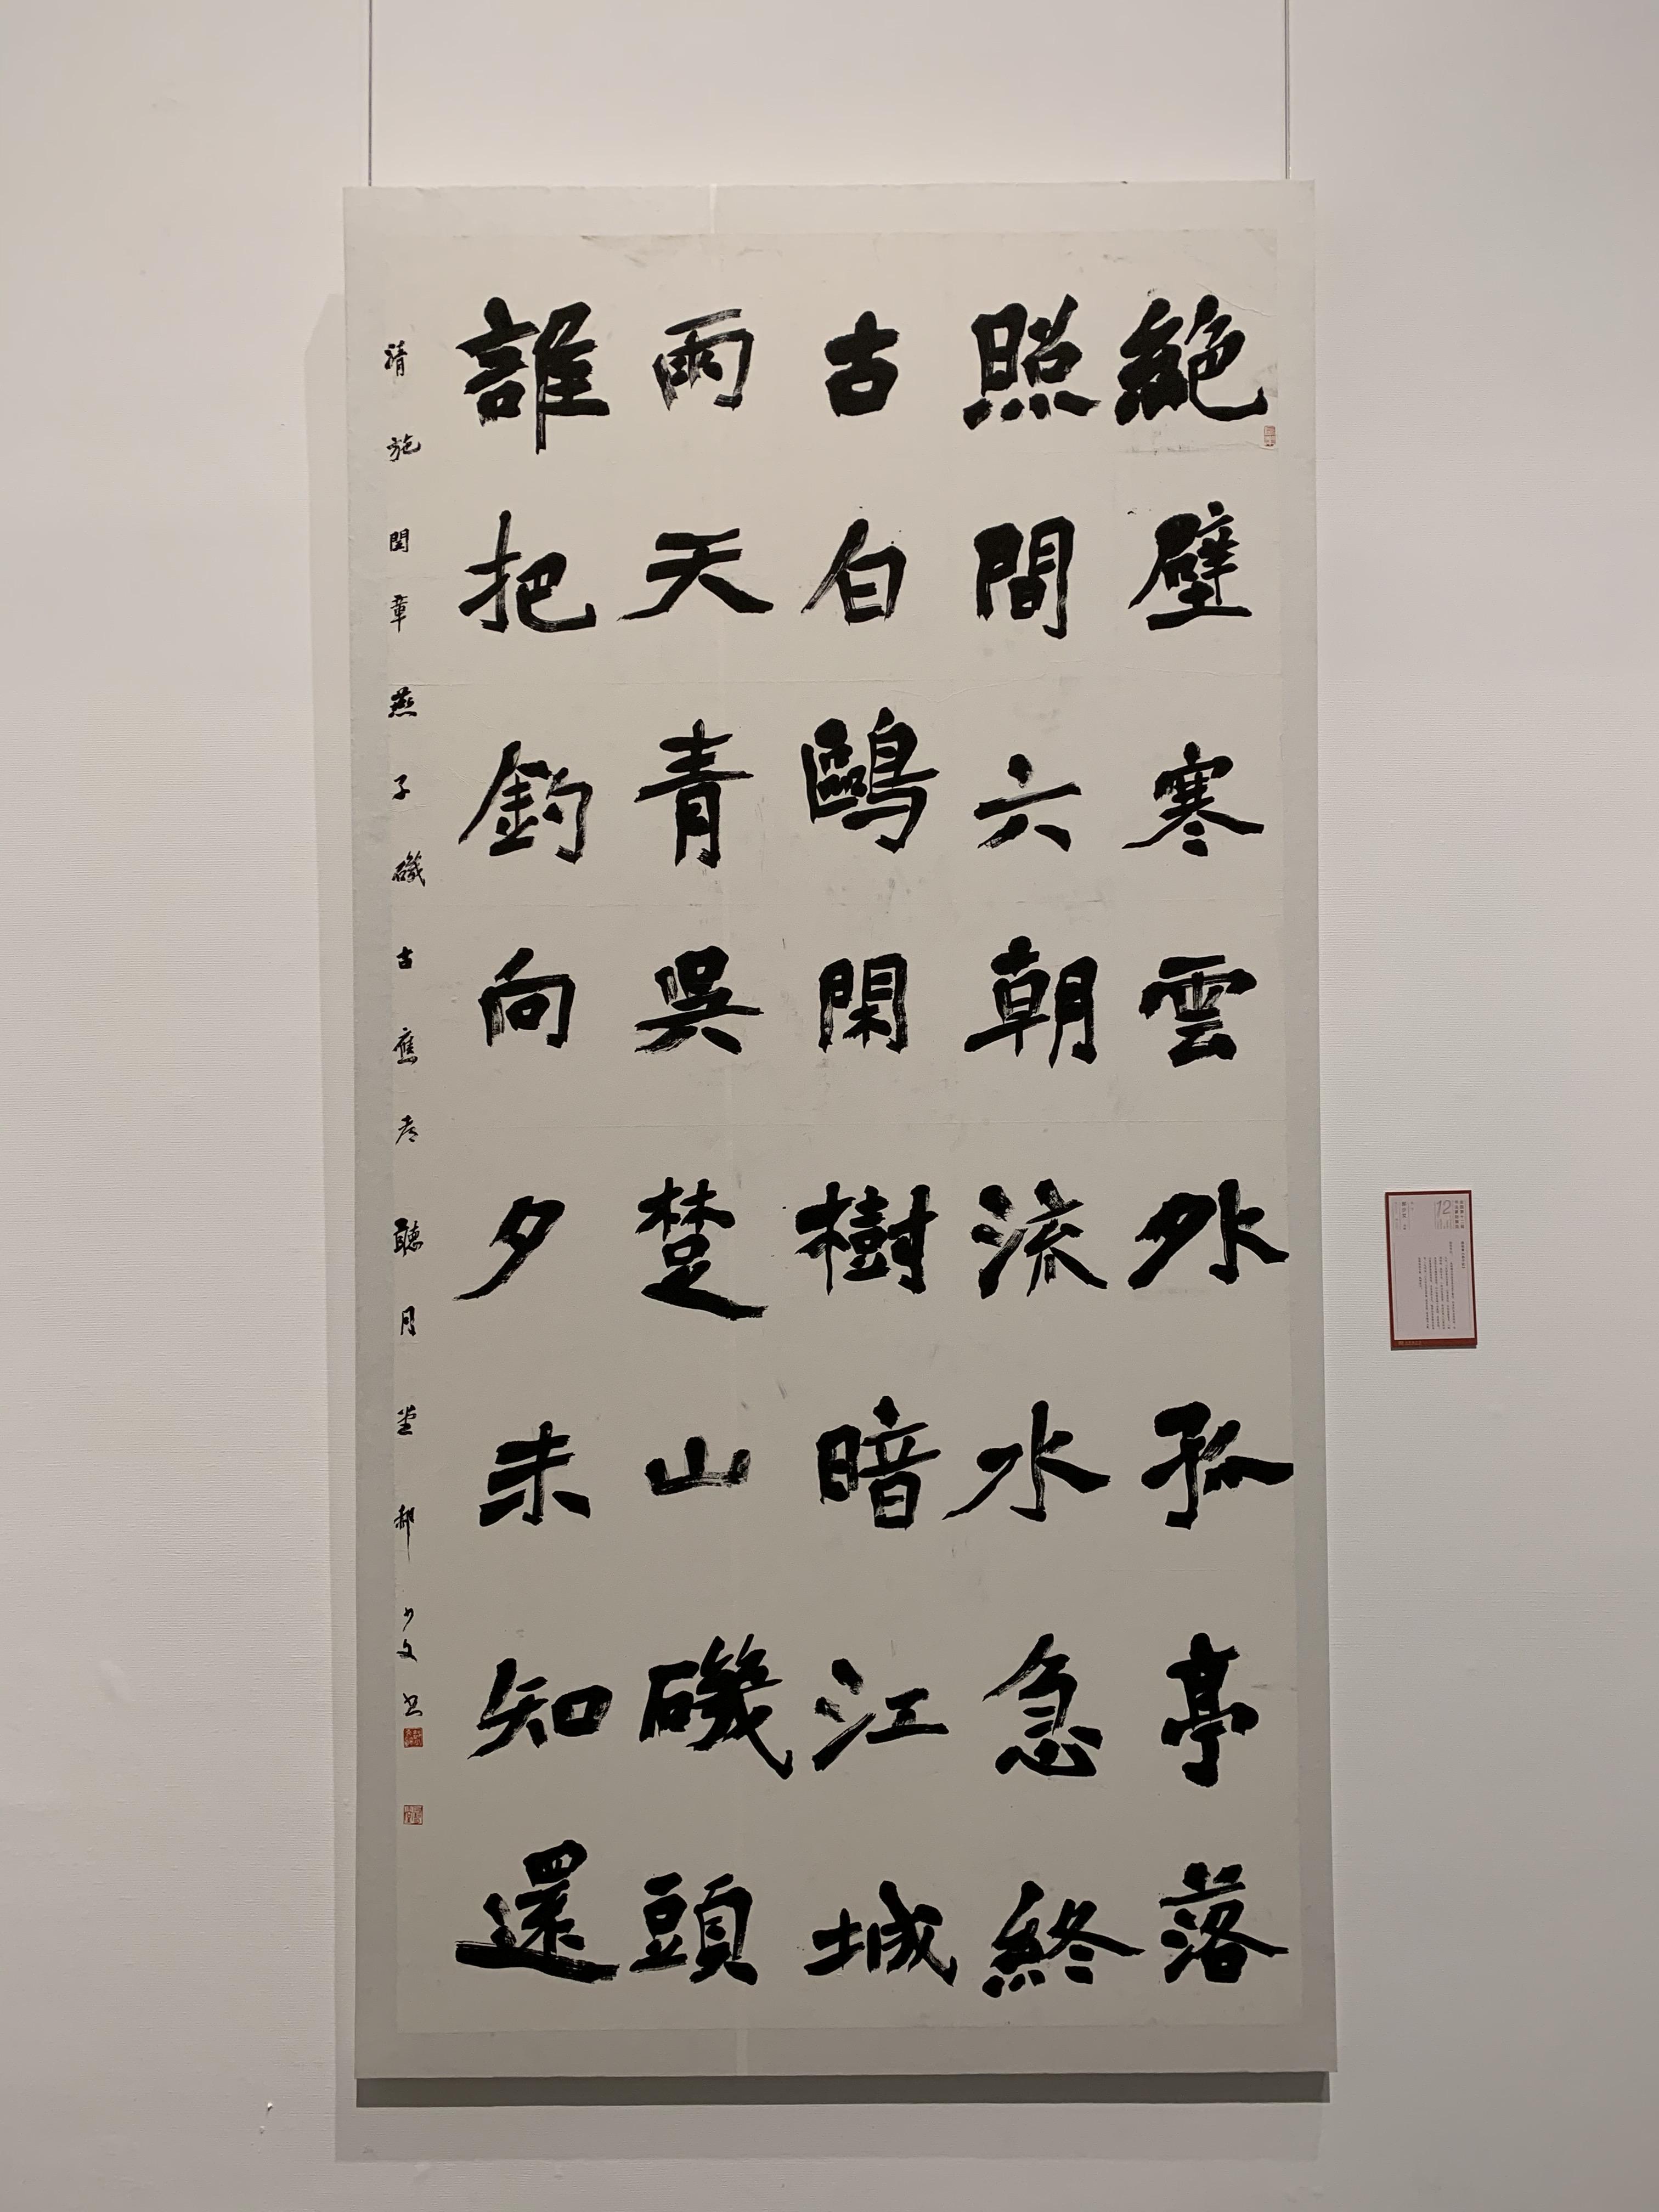 絕壁寒雲外孤亭落
照間六朝流水急終
古白鷗閑樹暗江城
雨天青吳楚山磯頭
誰把釣向夕未知還
清施閏章燕子磯古應聽月堂郝少文書
12